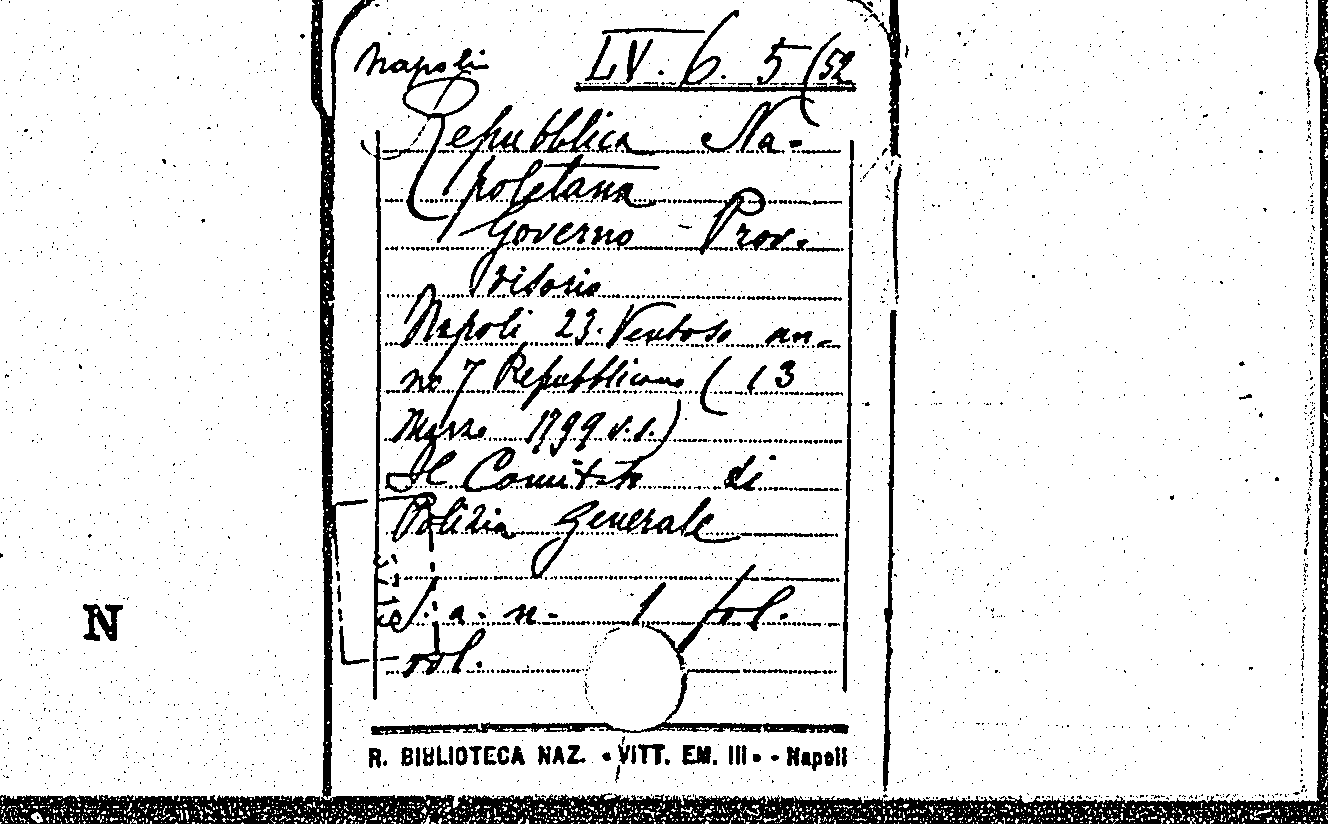 Napoli LV. 6. 5 (52
Repubblica Na-
poletana
Governo - Prov-
visorio
Napoli 23. Ventoso an-
no 7 Repubblicano (13
Marzo 1799 v.s.)
Il Comitato di
Polizia Generale
S. a. n. 1 fol.
vol.
3719
N
R. BIBLIOTECA NAZ. « VITT. EM. III » - Napoli